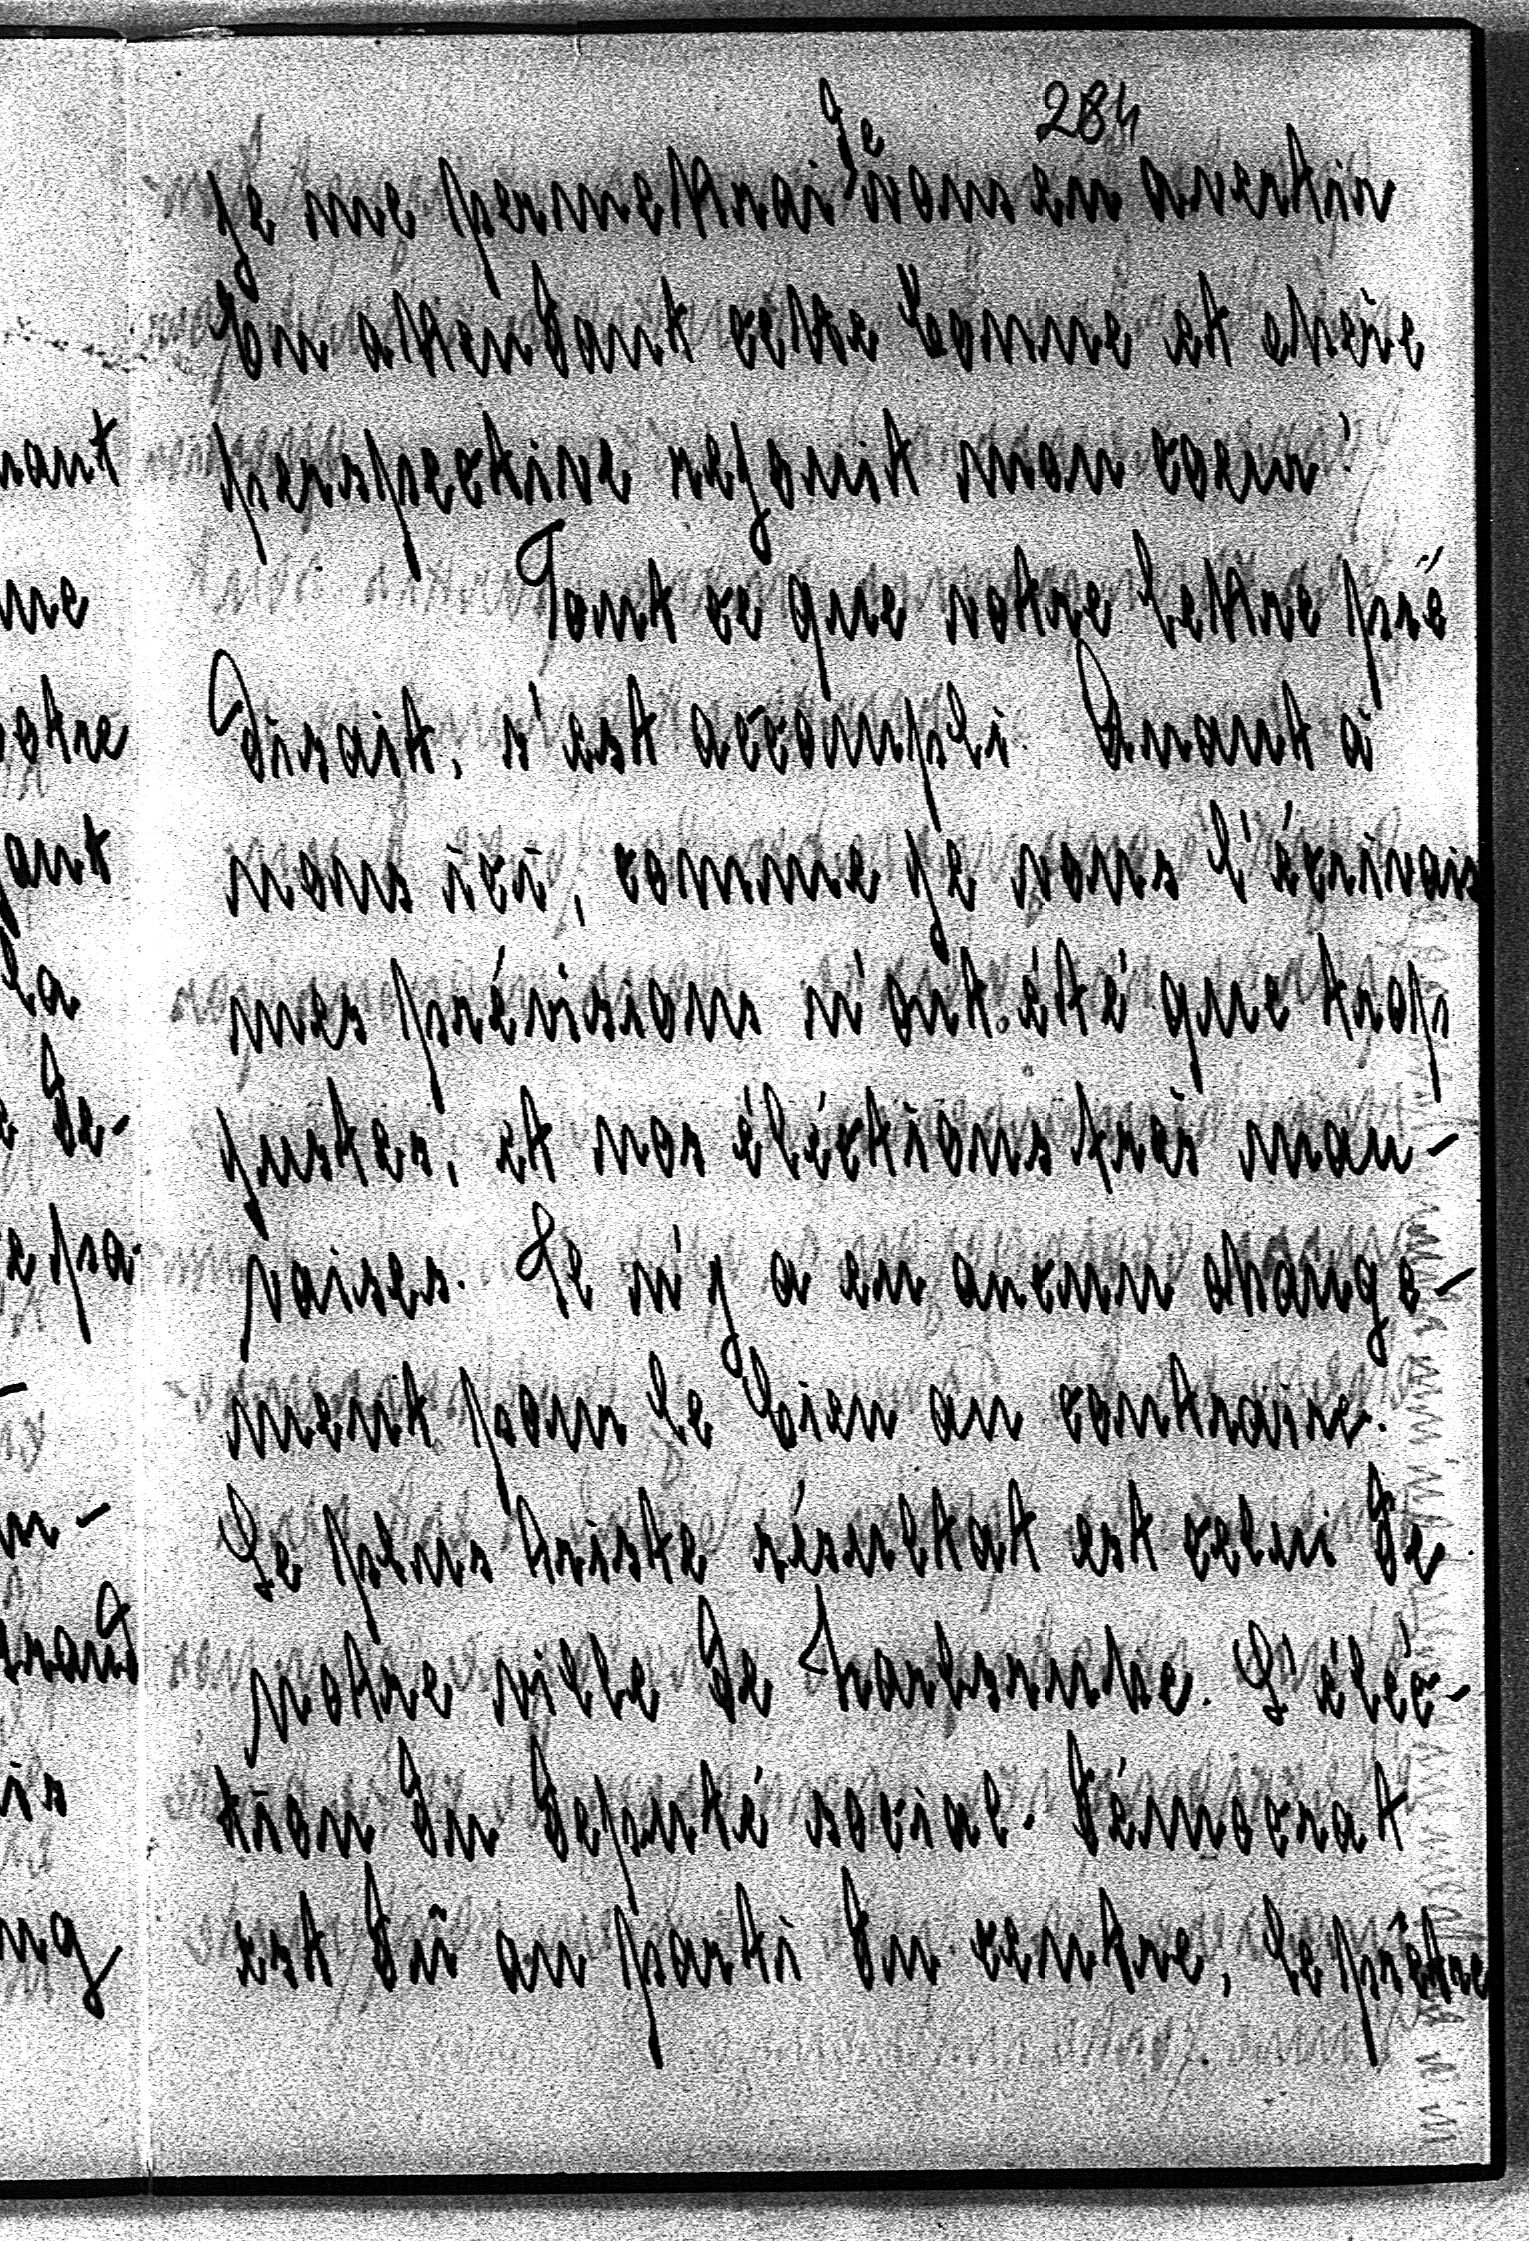 284
de
je me permettrai vous en avertir
En attendant cette bonne et chère
perspective rejouit mon coeur!
Tout ce que votre lettre pré
disait, s'est accompli. Quant à
nous ici, comme je vous l'écrivais
mes prévisions n'ont été que trop
justes, et nos élections très mau-
vaises. Il n'y a eu aucun change-
ment pour le bien au contraire.
Le plus triste résultat est celui de
notre ville de Karlsruhe. L'élec-
tion du deputé social-démocrat
est dû au parti du centre, le prêtre
nant
me
votre
la
e de-
e pa
n-
is